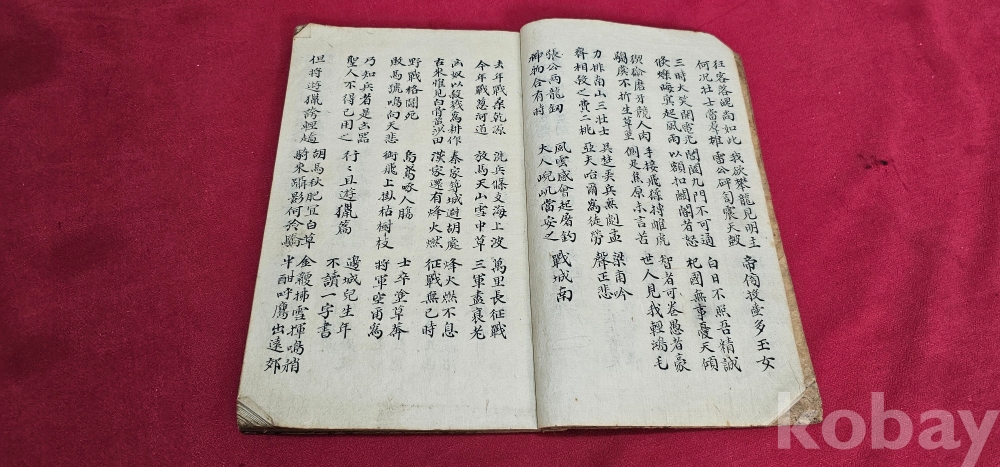 狂客落魄尚如此
何況壯士當羣雄
我欲攀龍見明主
雷公砰訇震天鼓
帝傍投壺多玉女
三時大笑開電光
倏爍晦冥起風雨
閶闔九門不可通
以額扣關閽者怒
白日不照吾精誠
杞國無事憂天傾
猰貐磨牙競人肉
騶虞不折生草莖
手接飛猱搏雕虎
側足焦原未言苦
智者可卷愚者豪
世人見我輕鴻毛
力排南山三壯士
齊相殺之費二桃
吳楚弄兵無劇孟
亞夫咍爾為徒勞
梁甫吟
聲正悲
張公兩龍劍
神物合有時
風雲感會起屠釣
大人㞾屼當安之
戰城南
去年戰桑乾源
今年戰葱河道
洗兵條支海上波
放馬天山雪中草
萬里長征戰
三軍盡衰老
匈奴以殺戮為耕作
古來惟見白骨黃沙田
秦家築城避胡處
漢家還有烽火燃
烽火燃不息
征戰無已時
野戰格鬪死
敗馬號鳴向天悲
烏鳶啄人腸
銜飛上掛枯樹枝
士卒塗草莽
將軍空爾為
乃知兵者是凶器
聖人不得已用之
行〻且遊獵篇
邊城兒生年
不讀一字書
但將遊獵誇輕趫
胡馬秋肥宜白草
騎來躡影何矜驕
金鞭拂雪揮鳴鞘
半酣呼鷹出遠郊
kobay